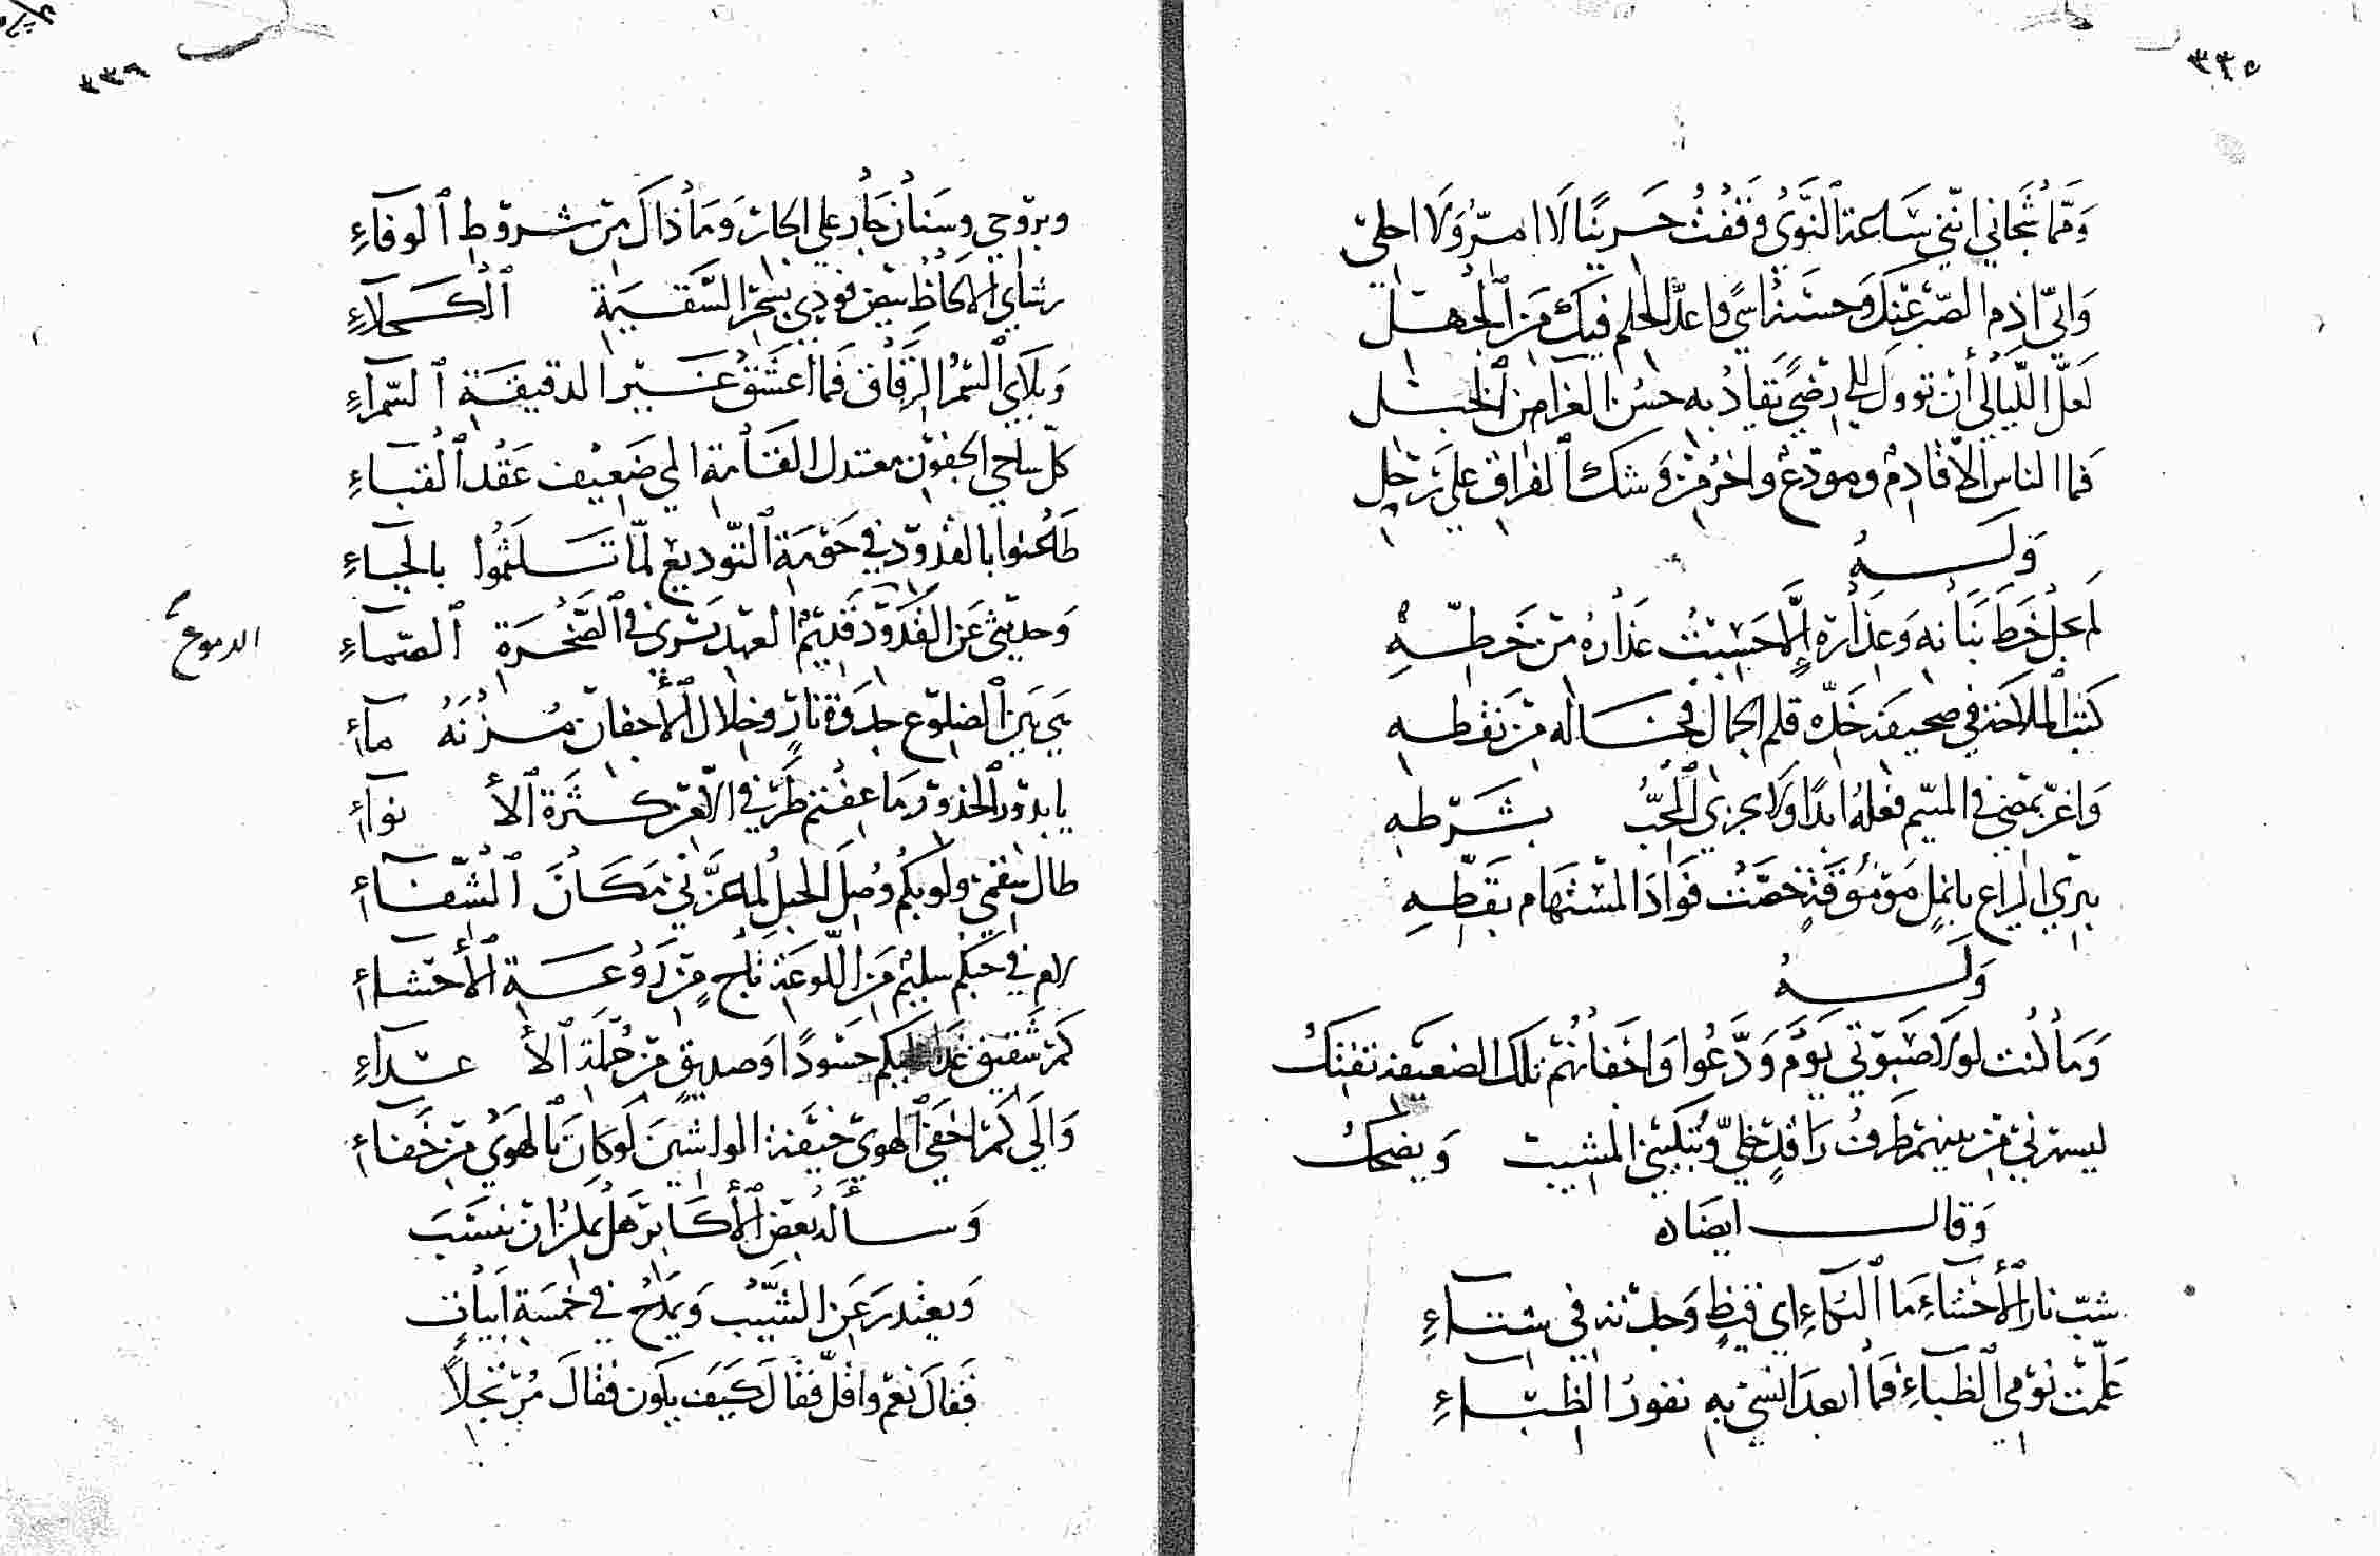 ٣٣٥
وَمِمَّا شَجَاني انّني سَاعة النَّوَى وَقَفْتُ حَزينًا لَا امرُّ وَلَا احلي
وَانّي اذم الصّبر عنكَ وَحسنه اسًى واعدّ الحلم فيك مَن الجهل
لعلّ اللّيالي أن توول الي رضًى تقاد به حسن العزا من الخبل
فما الناس الّا قادم ومودّع واخر من وشك الفراق علي رَحل
وَلَــهُ
لم يجل خَطَ بَنَانه وَعذاره إلّا حَسِبْتُ عذاره من خَطّــهِ
كتب الملاحَة في صحيفة خَدّه قلم الجمال فخاله من نقطــه
وَاغرّ يمضي في المتيّم فعلهُ ابدًا وَلَا يجزي المُحبُّ بشَرْطه
يبري اليراع بانمل مَومُوقَةٍ خصّت فوادَ المستهام بقطّــهِ
وَلَــهُ
وَمَا كُنت لولا صَبوتي يَوْمَ وَدَّعُوا وَاجفانهم تلك الضعيفة تفتكُ
ليسهرني من بينهم طرفُ راقدٍ خليّ ويُبكيني المشيبُ وَيضحكُ
وَقالـــ ايضَاه
شبّ نار الأحشَاءِ مَا البكَاءِ اي قيظٍ وَجدته في شتــاءِ
عَلّمت نوْمي الظباءُ فمَا ابعد انسي به نفورُ الظبــاءِ
٣٣٦
وبروحي وسنان جَار علي الجار وَمَا ذاكَ من شروط الوفاءِ
وَبلاي السّمرُ الرقاق فَما اعشق غيــر الدقيقَــة السّمرآءِ
كلّ ساجي الجفون معتدل القامة المي ضَعيف عَقْد القبــاءِ
طَعنوا بالقدود في حَوْمَة التّوديع لمّا تَسلثمُوا بالحيــاءِ
وَحديثي عَن القدود قديم العهد يَسْري في الصّخْــرَة الصّمآءِ
الدموع
بي بَين الضلوع جذوة نار وخلال الأجفان مُــزْنَةُ مآءِ
يا بدور الخدور مَا عفتم طَرفي الّا من كــثرَة الأنوآءِ
طال سقمي ولو بكم وُصِلَ الحبل لما عَزَّني مَكَــانَ الشّفــاءِ
لام في حبّكم سليم مَن اللّوعَة ناج من رَوْعــة الأحشــاءِ
كَم شَفيق غَدا عليكم حَسُودًا وَصديقٍ من جُملَة الأعــدآءِ
وَالَى كَم اخفي الهوى خيفَة الواشينَ لَو كانَ بالهوَى من خَفــاءِ
وَســأله بعض الأكَابر هَل يمكن ان ينسب
وَيعتذرَ عَن الشّيب وَيمَدح في خمسَة ابيات
فَقالَ نعم واقلّ فقالَ كيَف يكون فقالَ مُرتجلًا